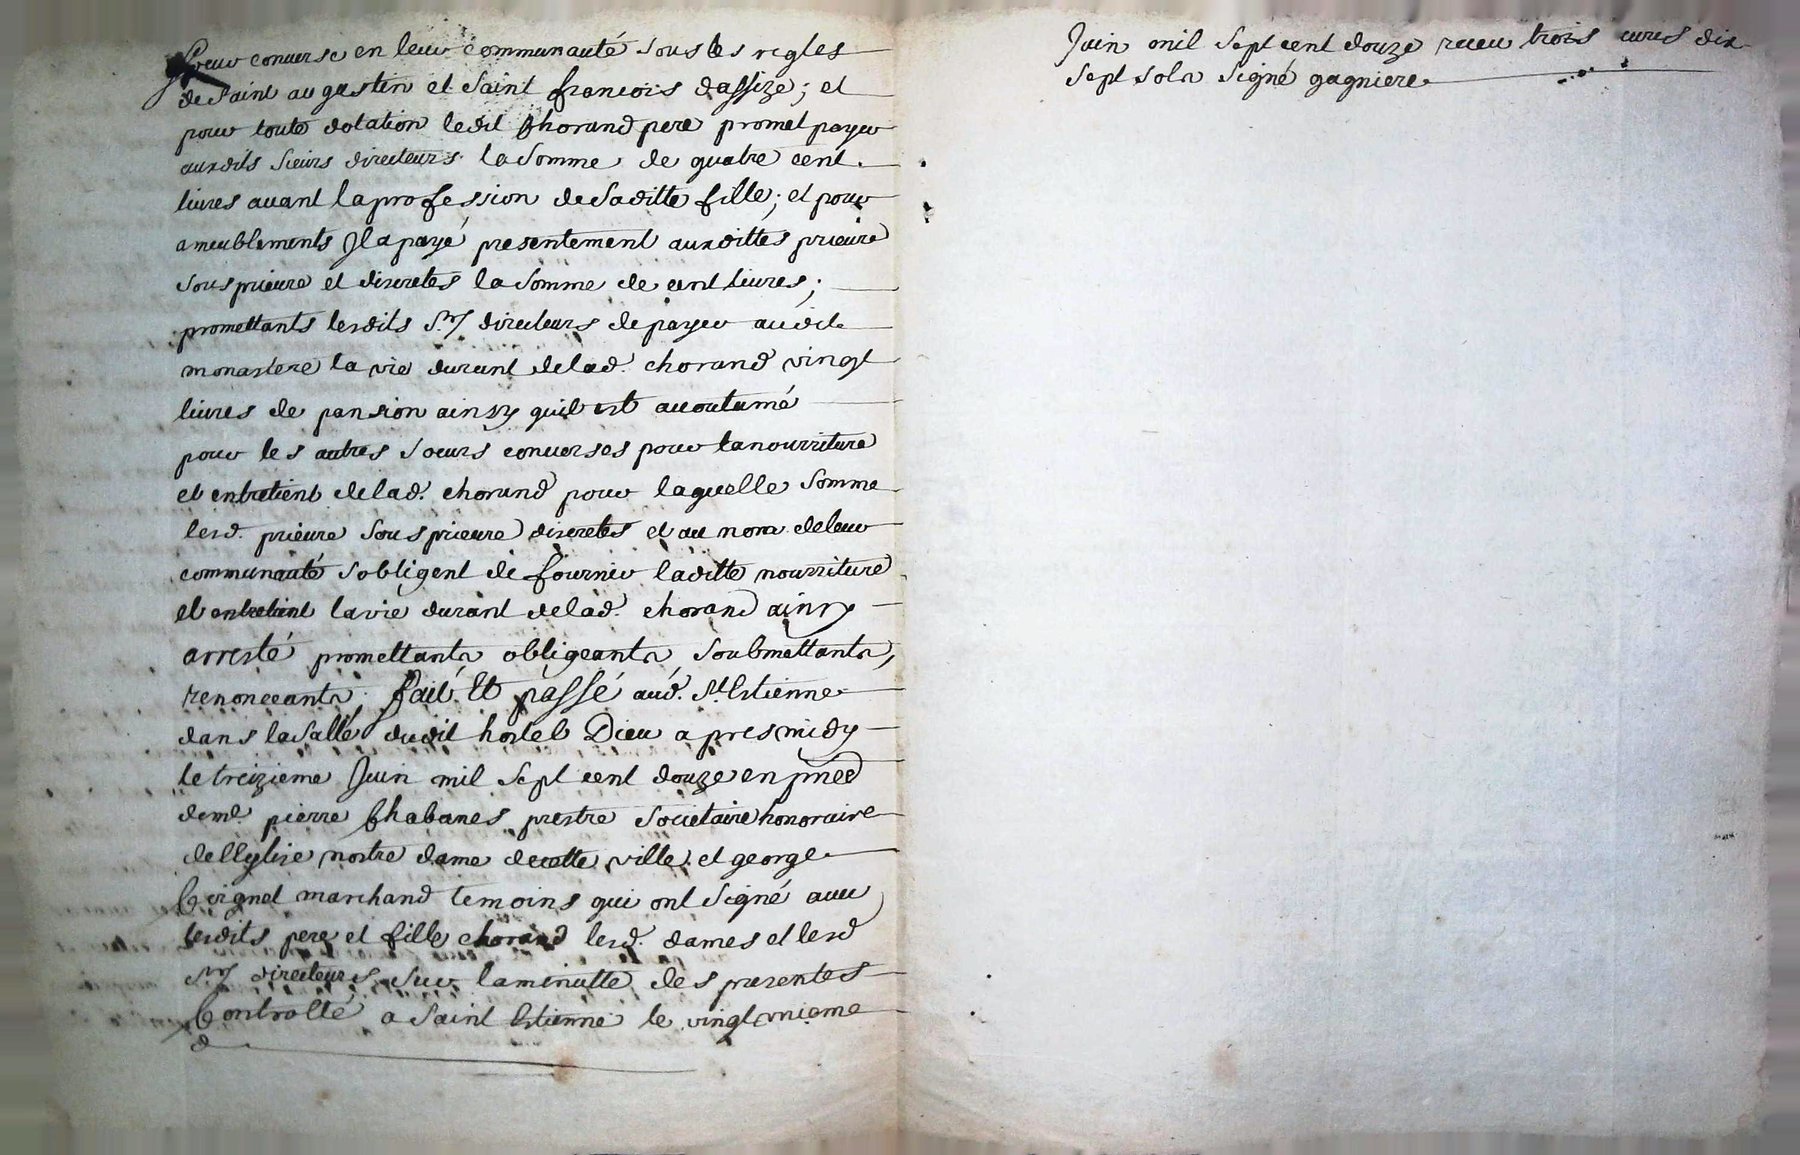 Soeur converse en leur communauté sous les regles
de Saint augustin et Saint francois dassize; et
pour toute dotation ledit Chorand pere promet payer
auxdits sieurs directeurs la somme de quatre cent
livres avant la profession de saditte fille; et pour
ameublements Jl a payé presentement auxdittes prieure
sousprieure et discretes la somme de cent livres;
promettants lesdits Srs directeurs de payer audit
monastere la vie durant de lad. chorand vingt
livres de pansion ainsy quil est accoutumé
pour les autres soeurs converses pour la nourriture
et entretient de lad. chorand pour laquelle somme
lesd. prieure sousprieure discretes et au nom de leur
communauté sobligent de fournir laditte nourriture
et entretient la vie durant de lad. chorand ainsy
arresté promettants obligeants soubmettants,
renonceants, fait Et passé aud. St Estienne
dans la salle dudit hostel Dieu apres midy
le treizieme Juin mil sept cent douze en pnce
de mre pierre Chabanes prestre societaire honoraire
de lEglise nostre dame de cette ville et george
Coignet marchand temoins qui ont signé avec
lesdits pere et fille chorand lesd. dames et lesd
Srs directeurs sur la minutte des presentes
Controllé a Saint Estienne le vingt unieme
d
Juin mil sept cent douze receu trois livres dix
sept sols signé gagniere